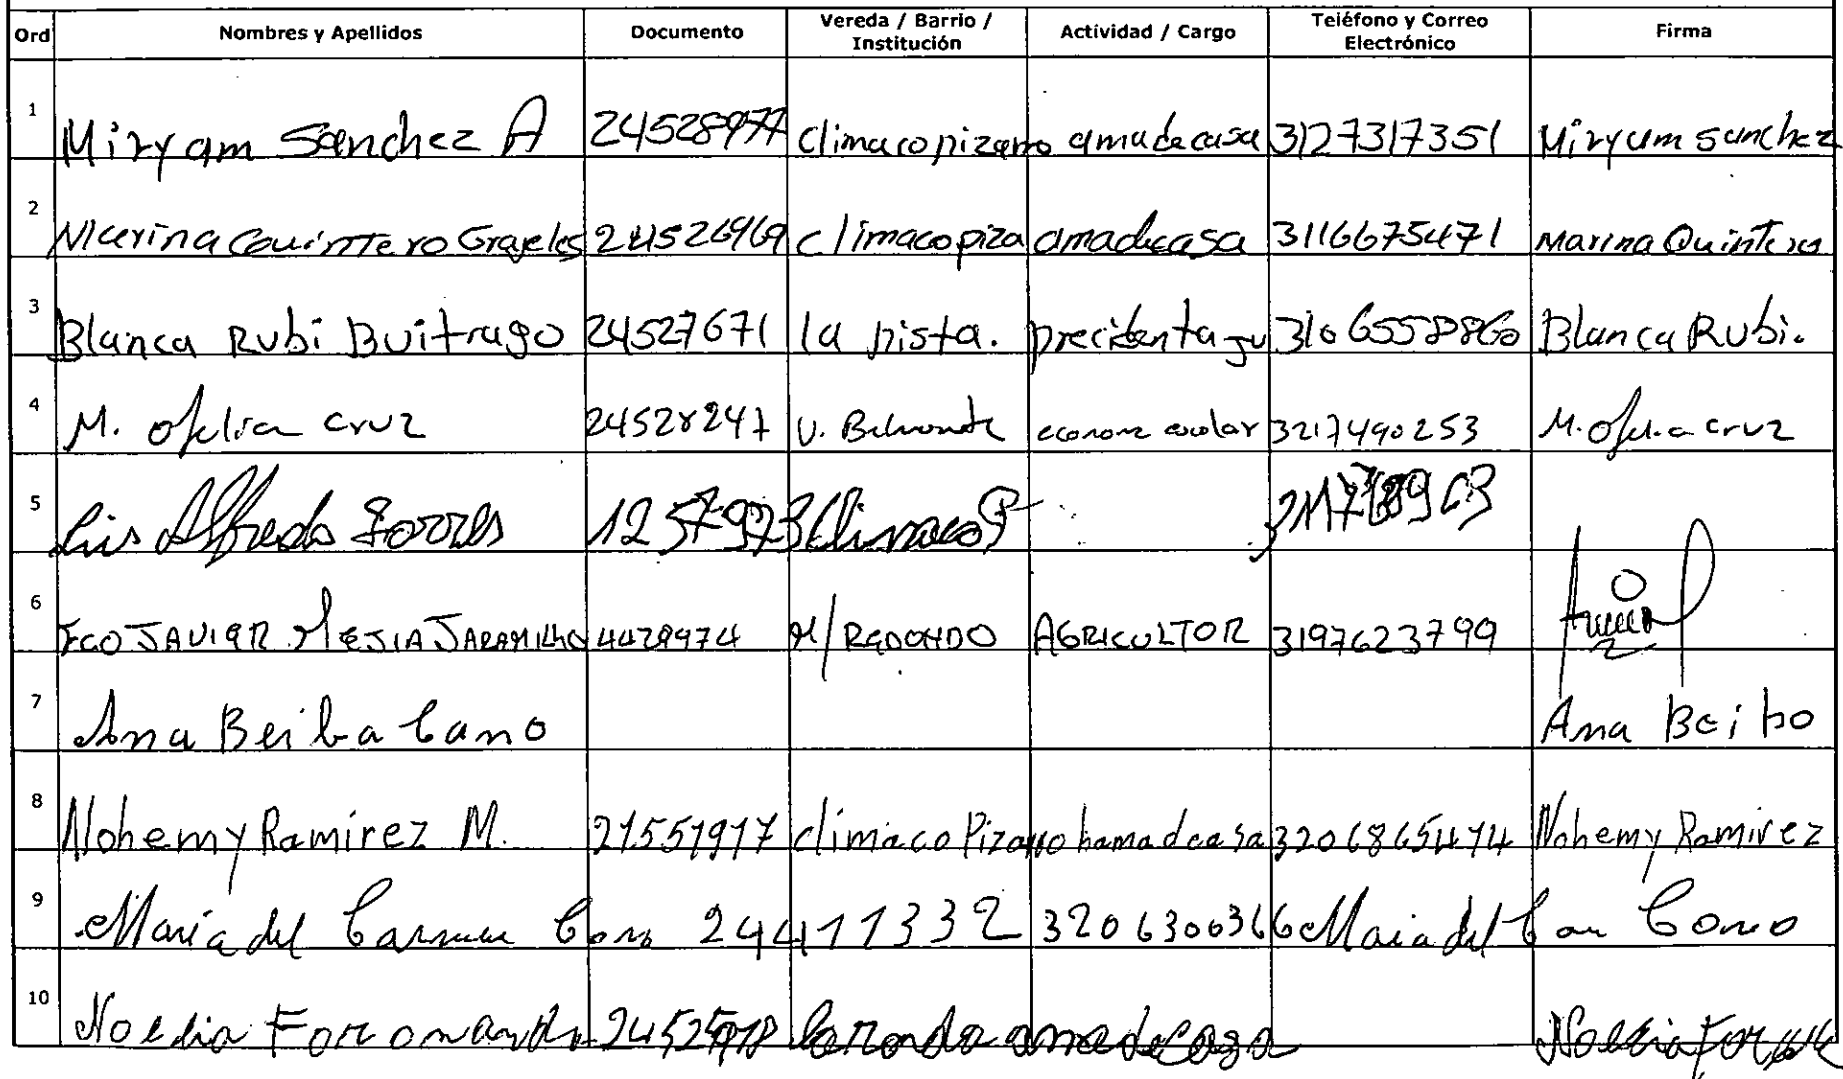 Ord Nombres y Apellidos Documento Vereda / Barrio / Institución Actividad / Cargo Teléfono y Correo Electrónico Firma
1 Miryam Sanchez A 24528977 Climaco pizarro ama de casa 3127317351 Miryam sanchez
2 Marina Quintero Grajales 24526969 Climaco piza ama de casa 3116675471 Marina Quintero
3 Blanca Rubi Buitrago 24527671 la pista. precidenta ju 3106558860 Blanca Rubi.
4 M. ofelia cruz 24528247 V. Belmonte econom escolar 3217490253 M. Ofelia cruz
5 Luis Alfredo Torres 1257973 Climaco P
6 FCO JAVIER MEJIA JARAMILLO 4429974 M/REDONDO AGRICULTOR 3197623799
7 Ana Beiba Cano Ana Beibo
8 Nohemy Ramirez M. 21551917 climaco Pizarro hama de casa 3206865474 Nohemy Ramirez
9 Maria del Carmen Cano 24411332 3206300366 Maria del Car Cano
10 Noelia ama de Casa Noelia